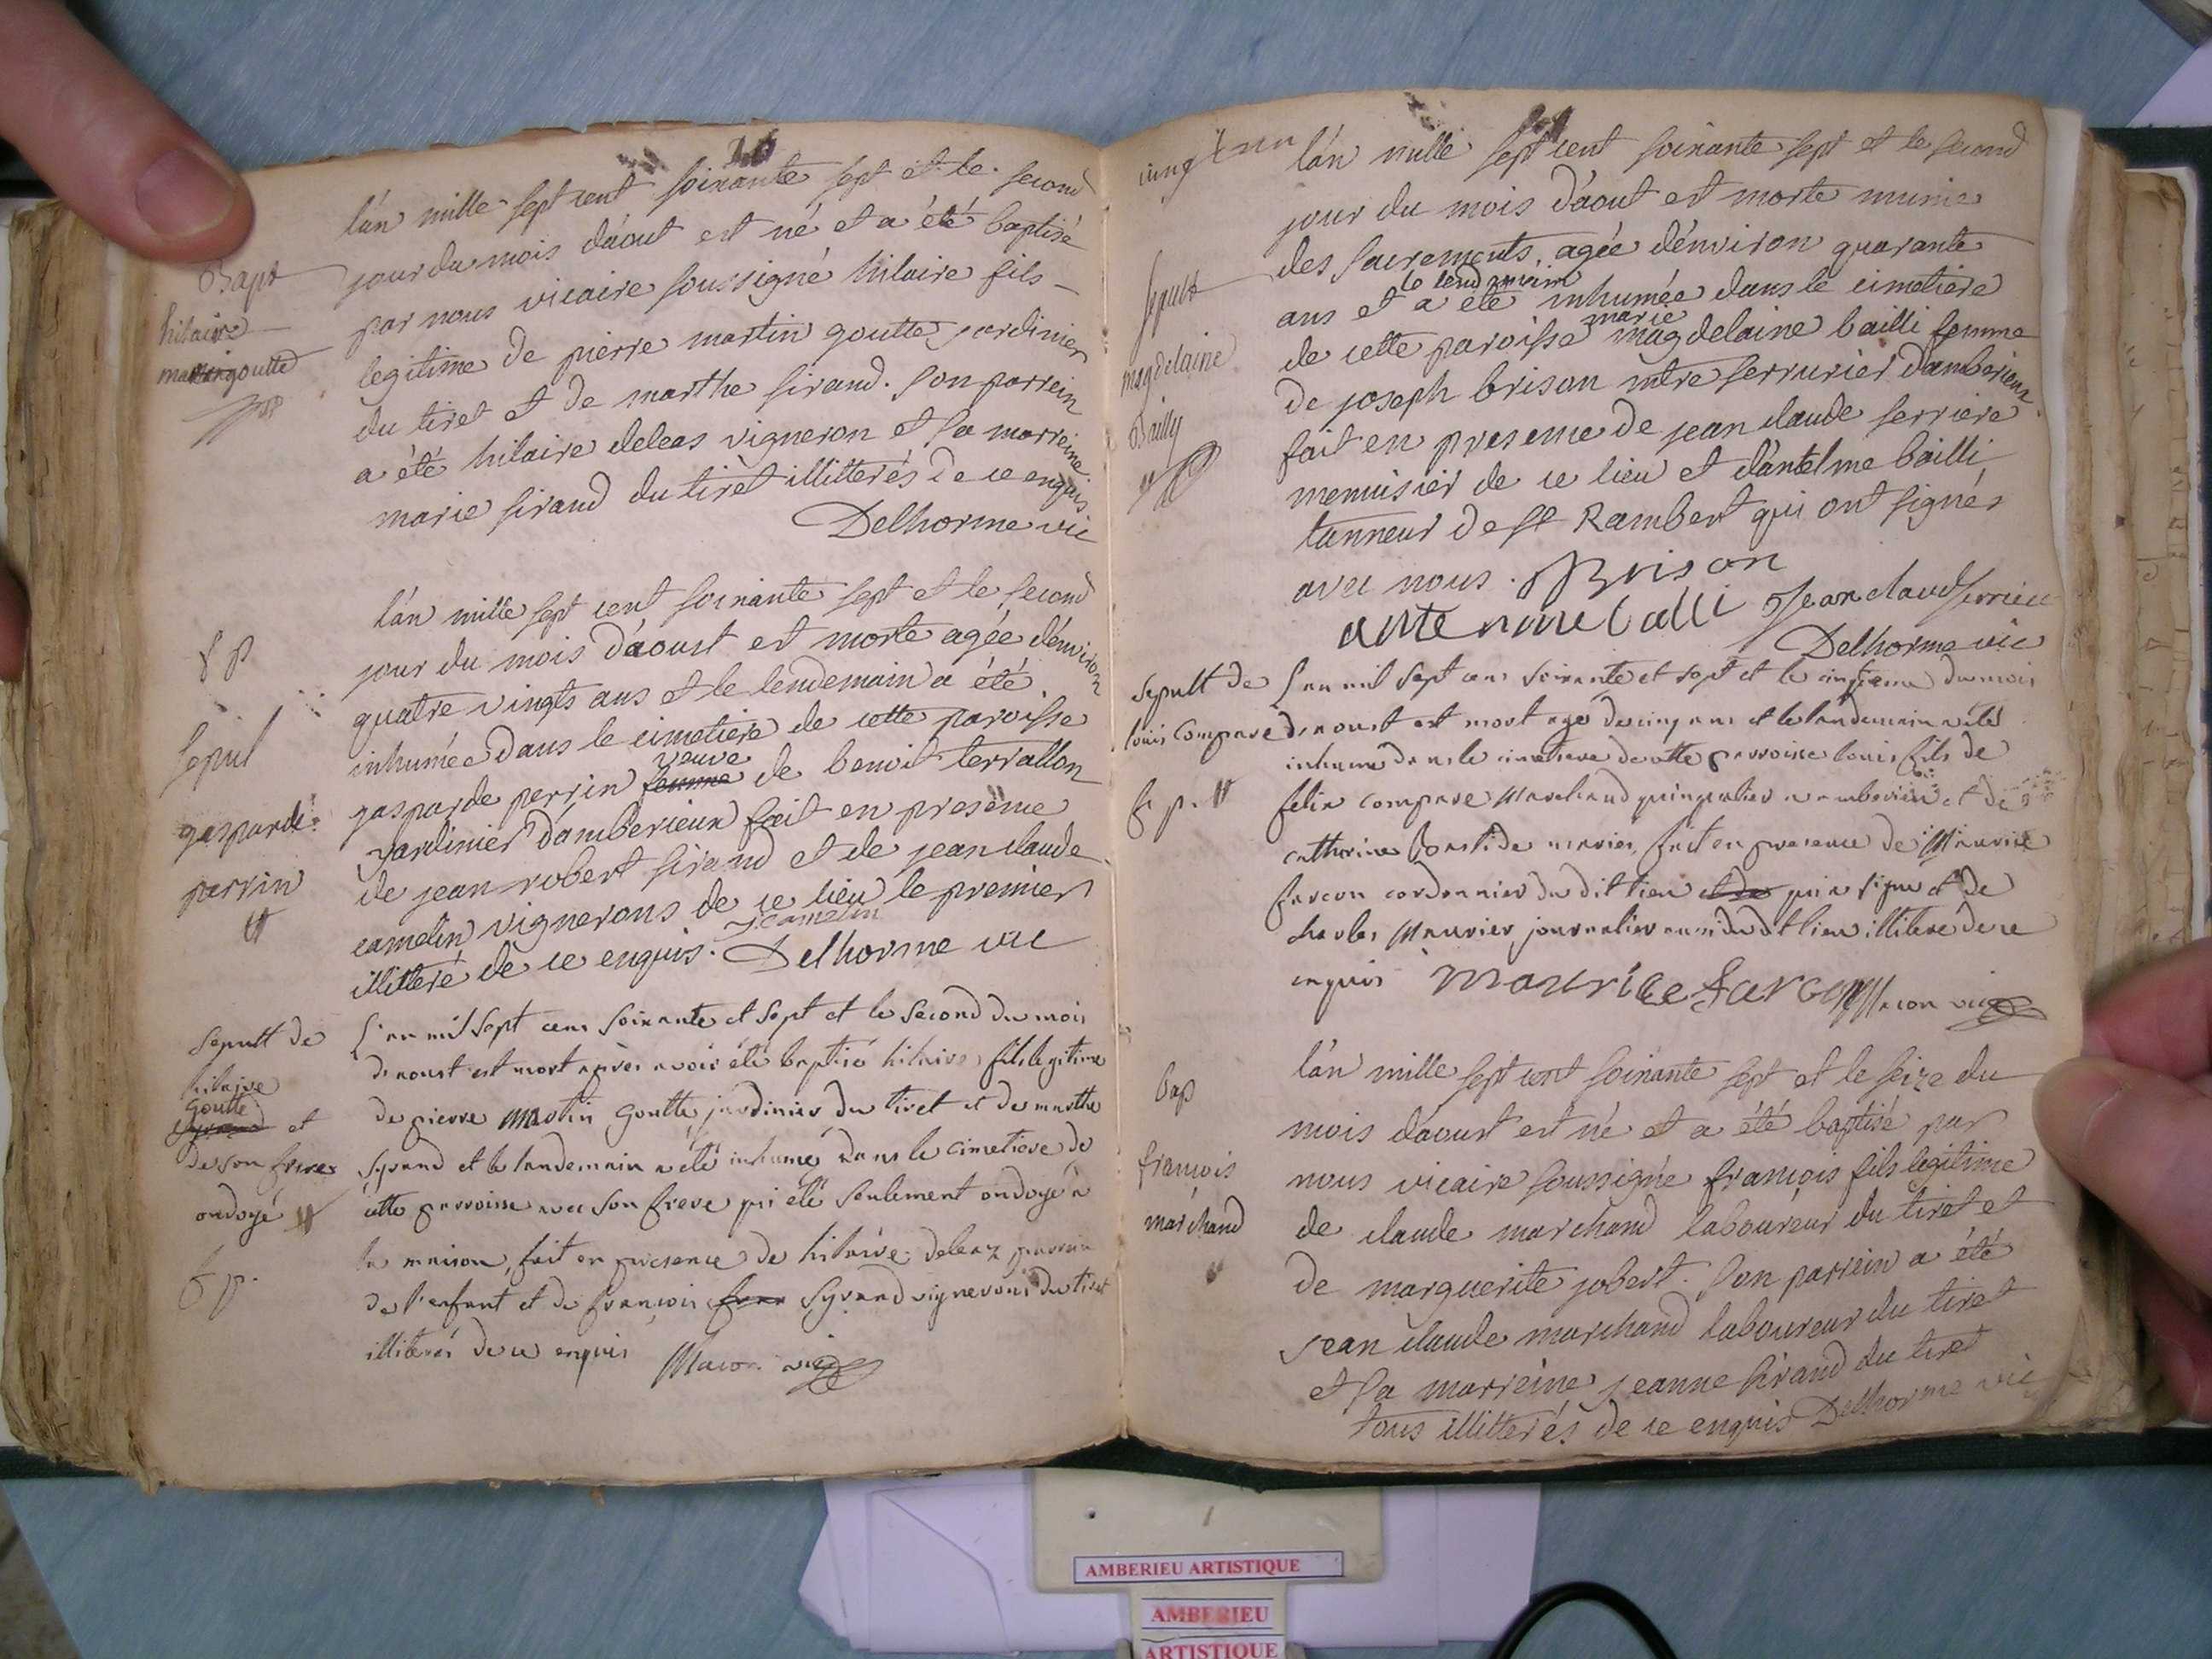 l'an mille sept cent soixante sept et le second
Bapt
jour du mois d'aout est né et a été baptisé
hilaire
par nous vicaire soussigné hilaire fils
martingoutte
legitime de pierre martin goutte jardinier
du tiret et de marthe sirand. son parrein
a été hilaire deleas vigneron et sa marreine
marie sirand du tiret illitterés de ce enquis
Delhorme vic
l'an mille sept cent soixante sept et le second
jour du mois d'aoust est morte agée d'environ
quatre vingts ans et le lendemain a été
Sepul
inhumée dans le cimetiere de cette paroisse
veuve
gasparde
gasparde perrin femme de benoit terrallon
jardinier d'amberieux fait en presence
perrin
de jean robert sirand et de jean claude
camelin vignerons de ce lieu le premier
J. Camelin
illitteré de ce enquis. Delhorme vic
Sepult de
L'an mil sept cens soixante et sept et le second du mois
hilaire
d'aoust est mort apres avoir été baptisé hilaire fils legitime
Goutte
Syrand et
de pierre Martin Goutte, jardinier du tiret et de marthe
de son frere
Syrand et le landemain a été inhumé dans le cimetiere de
ondoyé
cette parroisse avec son frere qui été seulement ondoyé a
f p.
la maison, fait en presence de hilaire deleaz parrein
de l'enfant et de francois fran Syrand vignerons du tiret
illiterés de ce enquis Macon vic
vingt un
l'an mille sept cent soixante sept et le second
jour du mois d'aout est morte munie
des sacrements, agée d'environ quarante
le lendemain
sepult
ans et a été inhumée dans le cimetiere
marie
magdelaine
de cette paroisse magdelaine bailli femme
Bailly
de joseph brison mtre serrurier d'amberieux
fait en presence de jean claude serriere
menuisier de ce lieu et d'antelme bailli
tanneur de st Rambert qui ont signés
avec nous. Brison
Jean claud serriere
Delhorme vic
Sepult de
L'an mil sept cens soixante et sept et le cinqieme du mois
louis Compare
d'aoust est mort agé de cinq ans et le landemain a été
inhumé dans le cimetiere de cette parroisse louis fils de
f p.
felix Compare Marchand quinqualier a amberieux et de
catherine bastide mariés, fait en presence de Maurice
farcon cordonnier du dit lieu et de qui a signé et de
charles Maurier journalier aussi du dt lieu illiteré de ce
enquis Maurice farcon Macon vic
l'an mille sept cent soixante sept et le seize du
bap
mois d'aoust est né et a été baptisé par
francois
nous vicaire soussigné francois fils legitime
marchand
de claude marchand laboureur du tiret et
de marguerite jobert. son parrein a été
jean claude marchand laboureur du tiret
et sa marreine jeanne sirand du tiret
tous illitterés de ce enquis Delhorme vic
AMBERIEU ARTISTIQUE
AMBERIEU
ARTISTIQUE